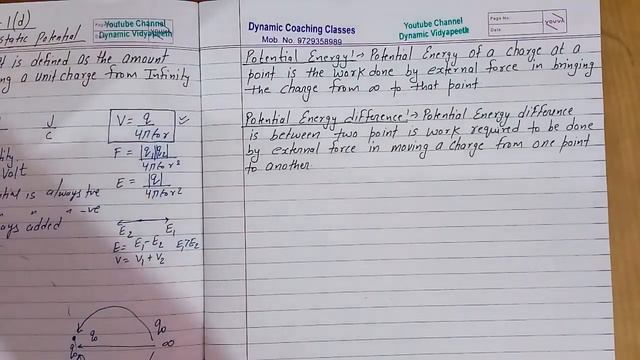 -1(d)
Youtube Channel
Dynamic Vidyapeeth
static Potential
is defined as the amount
a unit charge from Infinity
J
C
Volt
is always +ve
" " " -ve
added
V = q
4πϵ₀r
F = |q₁||q₂|
4πϵ₀r²
E = |q|
4πϵ₀r²
E₂ E₁
E = E₁-E₂ E₁>E₂
V = V₁+V₂
q₀
q₀ ∞
q
Dynamic Coaching Classes
Mob No. 9729358989
Youtube Channel
Dynamic Vidyapeeth
Page No.
Date
YOUVA
Potential Energy :→ Potential Energy of a charge at a
point is the work done by external force in bringing
the charge from ∞ to that point
Potential Energy difference :→ Potential Energy diffuence
is between two point is work required to be done
by external force in moving a charge from one point
to another.